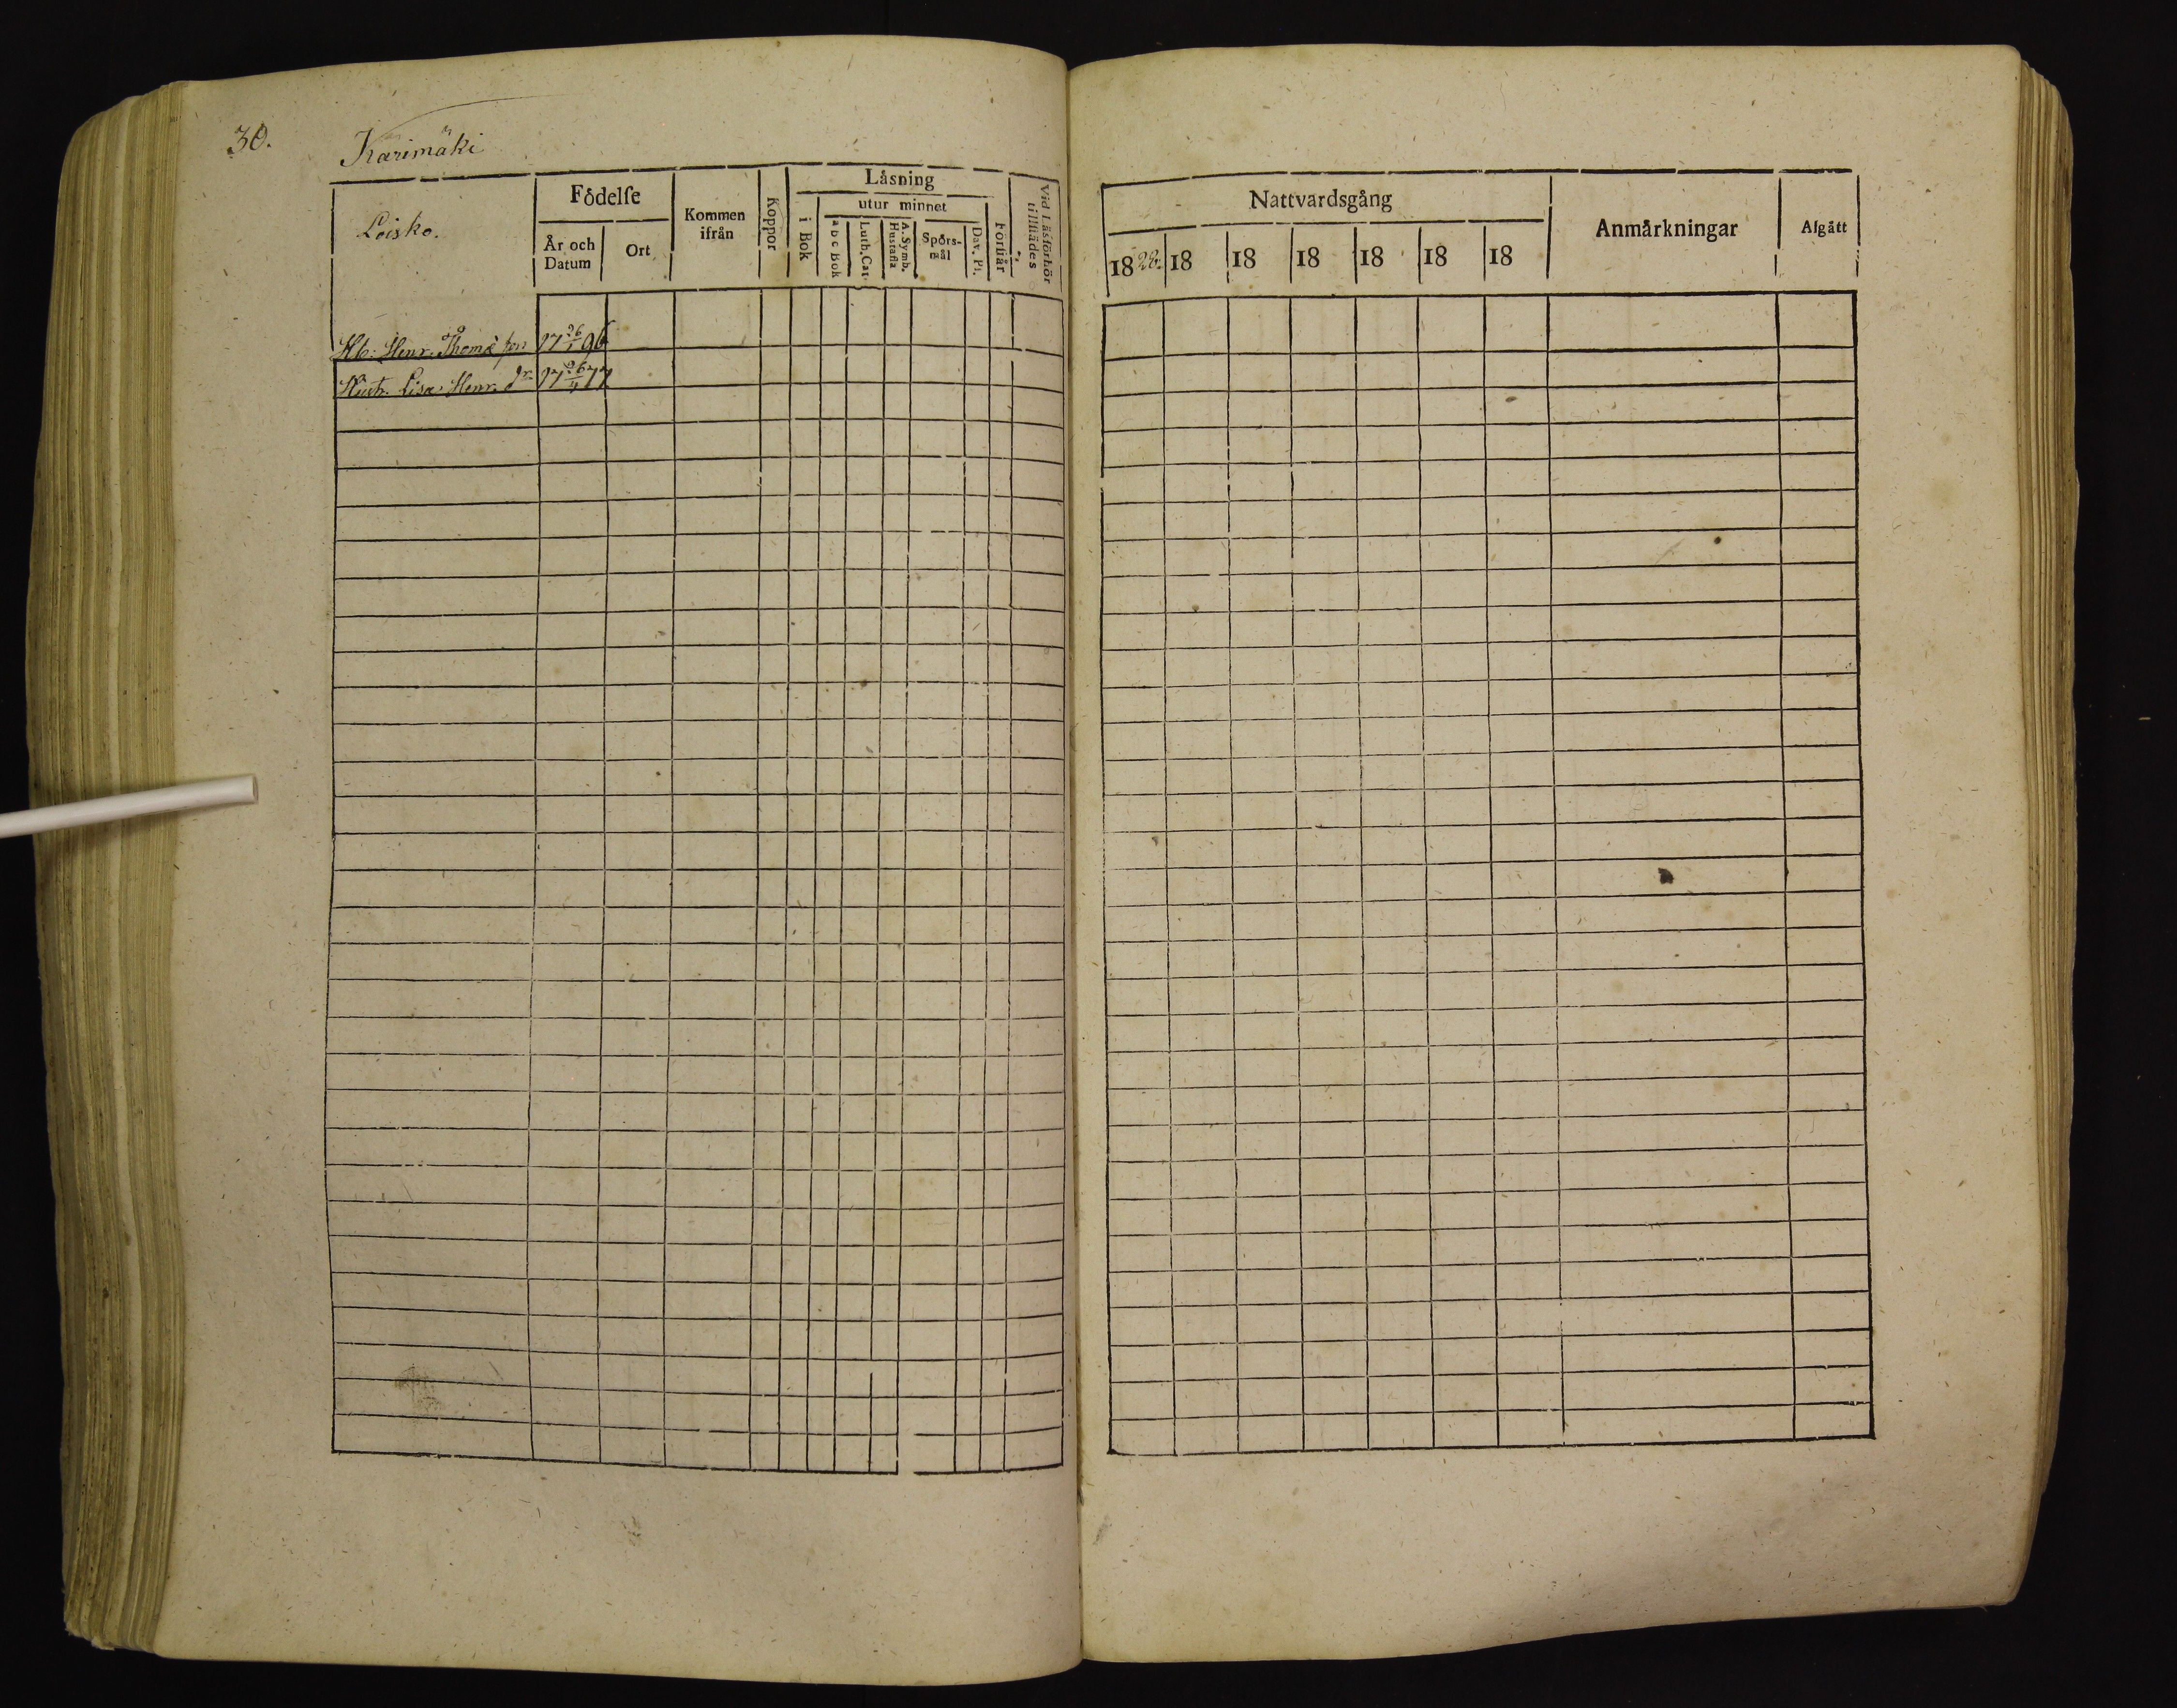 30.
Karimäki
Loisko.
Födelse
År och Datum
Ort
Kommen ifrån
Koppor
Läsning
i Bok
utur minnet
a b c Bok
Luth. Cat.
A. Symb. Hustafla
Spörsmål
Dav. Ps.
Förstår
Vid Läsförhör tillstädes
Nattvardsgång
1828. 18 18 18 18 18 18
Anmärkningar
Afgått
Hb: Henr. Thomæ son 17 26/1 96
Hustr. Lisa Henr. dr 17 26/11 77